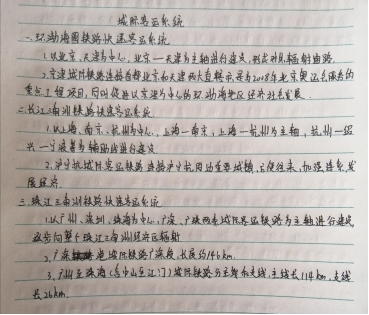 城际客运系统
一.环渤海圈铁路快速客运系统
1.以北京、天津为中心，北京—天津为主轴进行建设，形成对外辐射通路.
2.京津城际铁路连接首都北京和天津两大直辖市是为2008年北京奥运会服务的
重点工程项目，同时促进以京津为中心的环渤海地区经济社会发展.
二.长江三角洲铁路快速客运系统
1.以上海、南京、杭州为中心，上海—南京，上海—杭州为主轴，杭州—绍
兴—宁波等为辅助线进行建设
2.沪宁杭城际客运铁路连接沪宁杭周边重要城镇，方便往来，加强连系，发
展经济.
三.珠江三角洲铁路快速客运系统
1.以广州、深圳、珠海为中心，广深、广珠两条城际客运铁路为主轴进行建设，
逐步向整个珠江三角洲经济区辐射
2.广深港城际铁路广深段，长度约146km.
3.广州至珠海(含中山至江门)城际铁路分主轴和支线，主线长114km，支线
长26km.